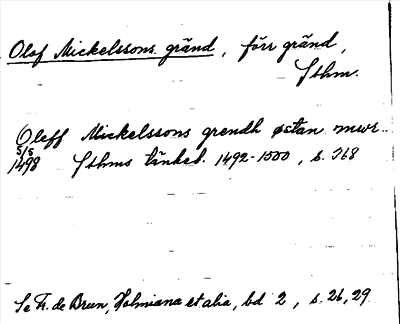 Olof Mickelssons gränd, förr gränd,
Sthm.
Oleff Mickelssons grendh østan mwr.
5/5
1498 Sthms tänkeb. 1492-1500, s. 368
Se Fr. de Brun, Holmiana et alia, bd 2, s. 26, 29